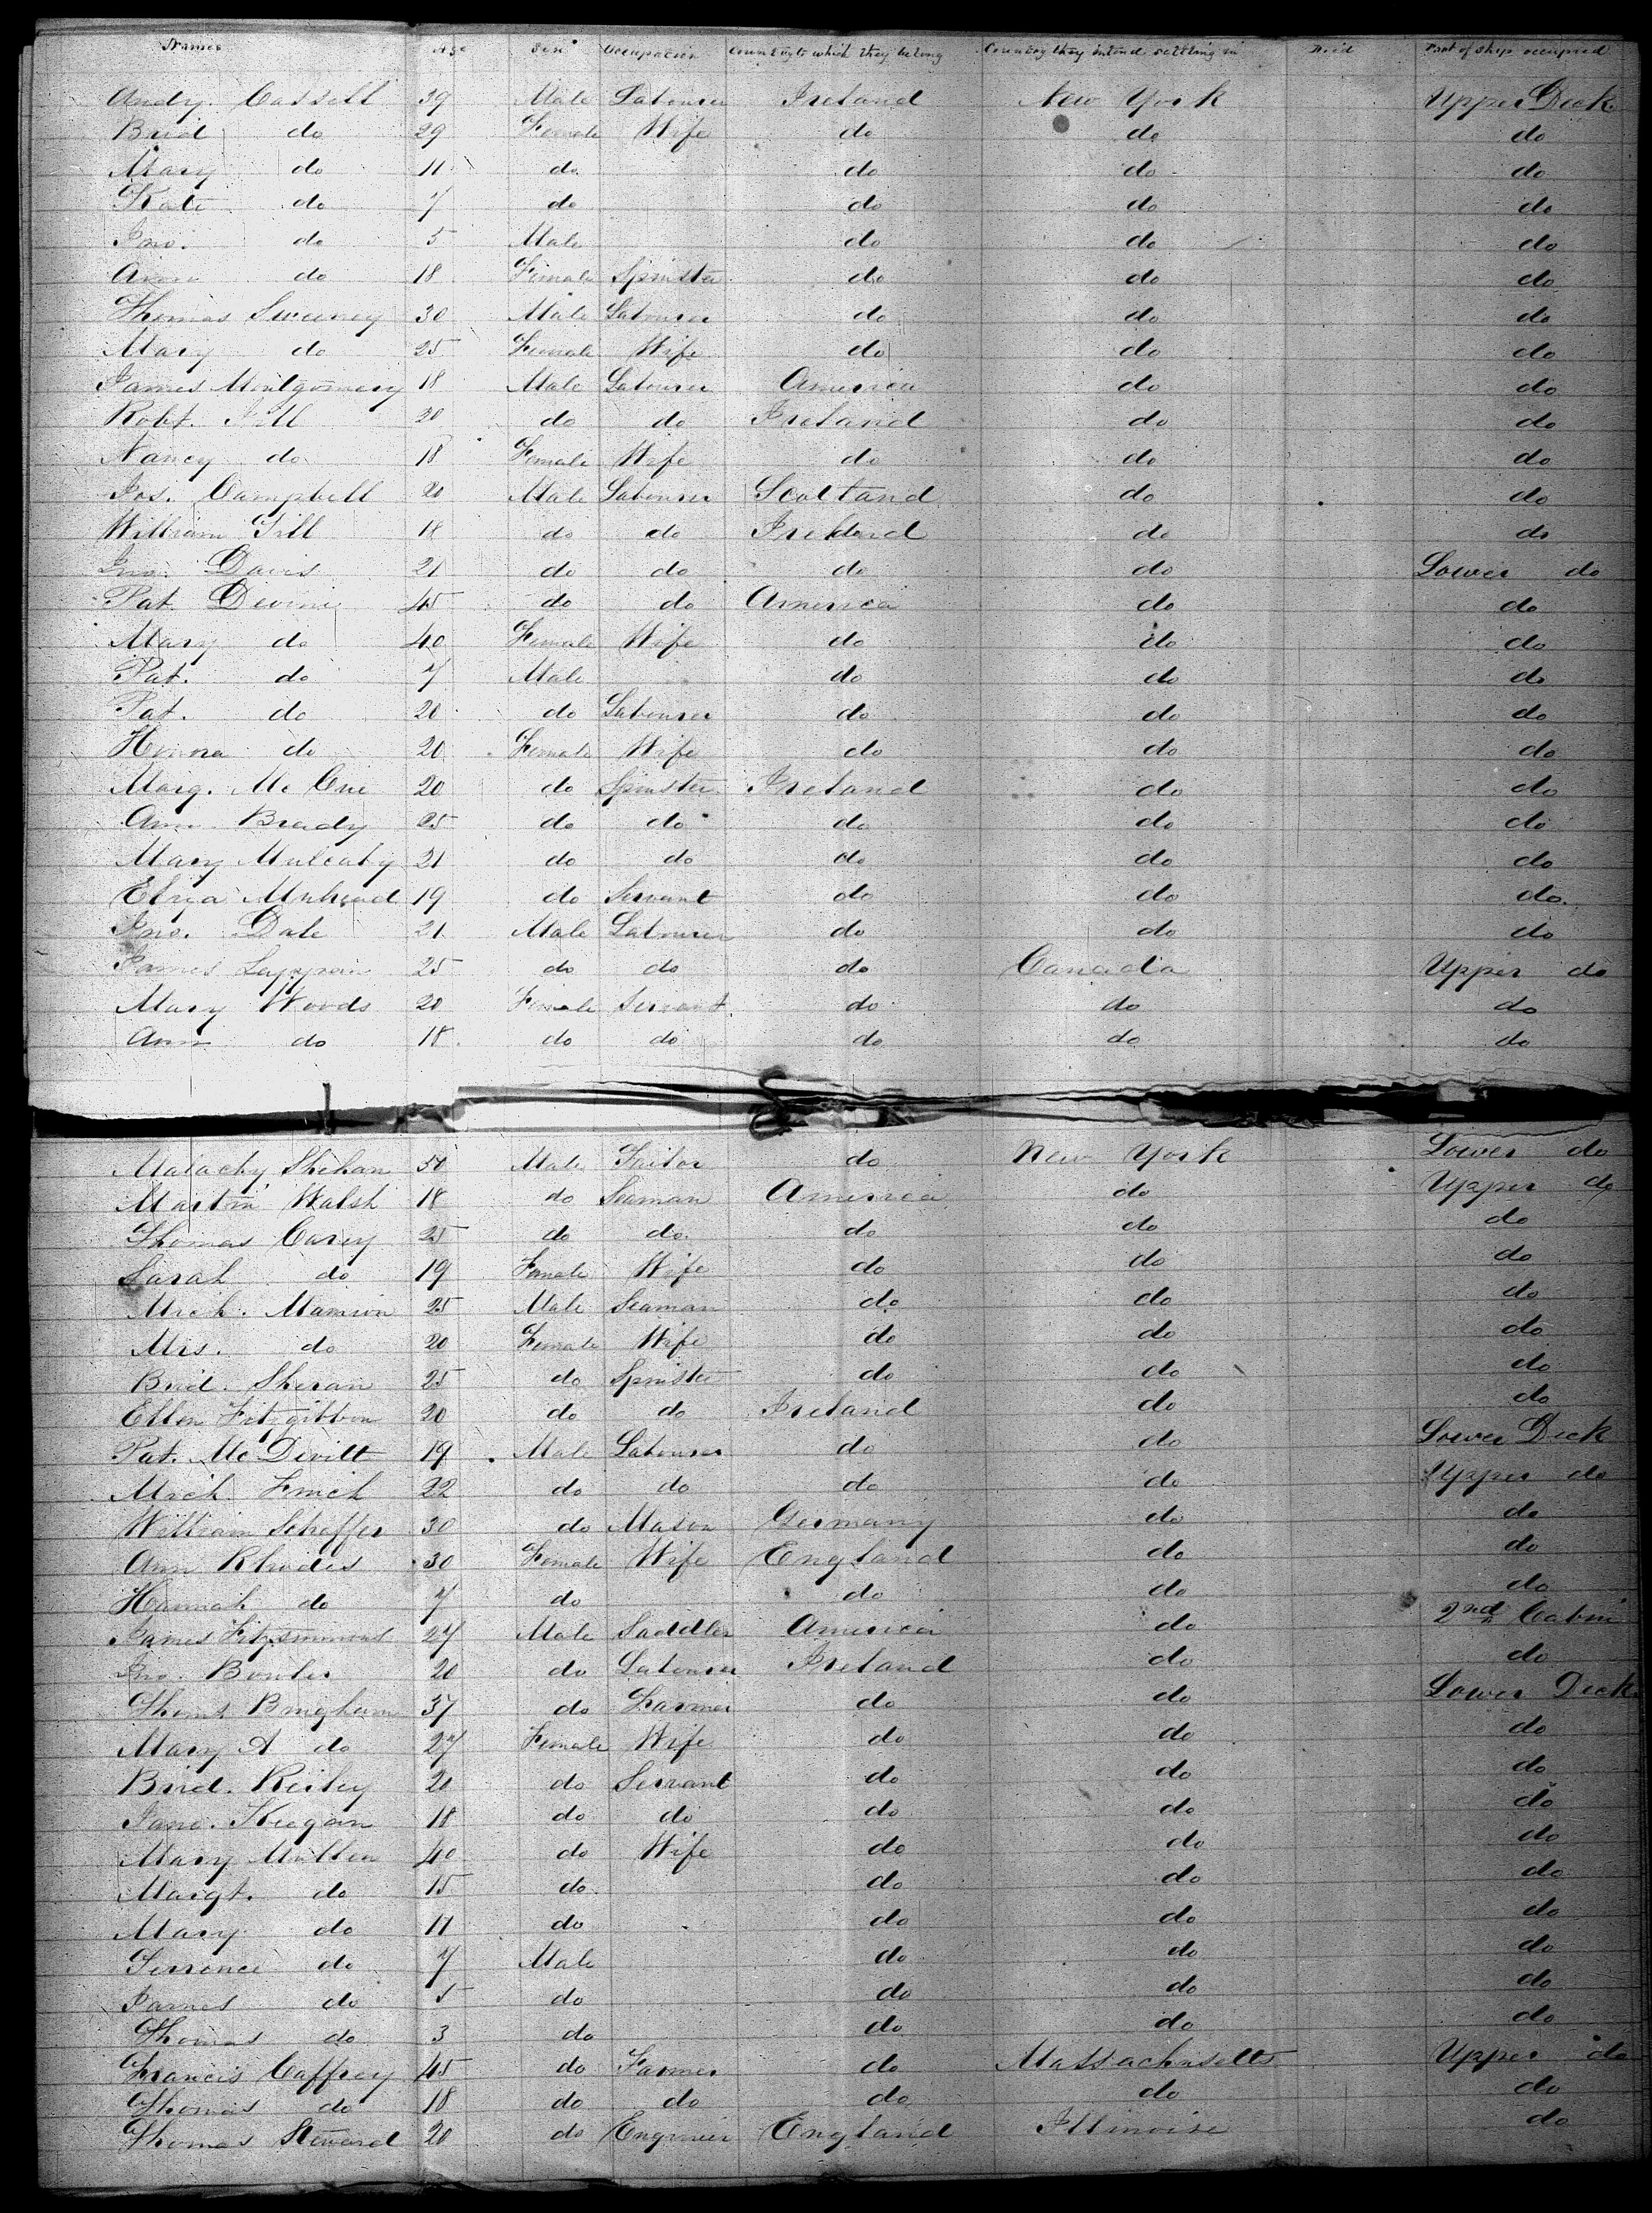 Names Age Sex Occupation Country to which they belong Country they intend settling in Died Part of ship occupied
Andy. Cassell 39 Male Labourer Ireland New York Upper Deck
Brid do 29 Female Wife do do do
Mary do 11 do do do do
Kate do 7 do do do do
Jno. do 5 Male do do do
Ann do 18 Female Spinster do do do
Thomas Sweeney 30 Male Labourer do do do
Mary do 25 Female Wife do do do
James Montgomery 18 Male Labourer America do do
Robt. 20 do do Ireland do do
Nancy do 18 Female Wife do do do
Jos. Campbell 20 Male Labourer Scotland do do
William Gill 18 do do Ireland do do
Jno. Davis 21 do do do do Lower do
Pat. Devine 45 do do America do do
Mary do 40 Female Wife do do do
Pat. do 7 Male do do do
Pat. do 20 do Labourer do do do
Honora do 20 Female Wife do do do
Marg. Mc 20 do Spinster Ireland do do
Ann Brady 25 do do do do do
Mary Mulcahy 21 do do do do do
Eliza 19 do Servant do do do
Jno. Dale 21 Male Labourer do do do
James Lappan 25 do do do Canada Upper do
Mary Woods 20 Female Servant do do do
Ann do 18 do do do do do
Malachy Shehan 50 Male Tailor do New York Lower do
Martin Walsh 18 do Seaman America do Upper do
Thomas Carey 25 do do do do do
Sarah do 19 Female Wife do do do
Mich. Mannion 25 Male Seaman do do do
Mrs. do 20 Female Wife do do do
Brid. Sheran 25 do Spinster do do do
Ellen Fitzgibbon 20 do do Ireland do do
Pat. Mc Devitt 19 Male Labourer do do Lower Deck
Mich Finch 22 do do do do Upper do
William Scheffer 30 do Mason Germany do do
Ann Rhodes 30 Female Wife England do do
Hannah do 7 do do do do
James Fitzsimmons 27 Male Saddler America do 2nd Cabin
Jno. Bowler 20 do Labourer Ireland do do
Thoms Bingham 37 do Farmer do do Lower Deck
Mary A do 27 Female Wife do do do
Brid. Reiley 20 do Servant do do do
Keegan 18 do do do do do
Mary Mullen 40 do Wife do do do
Margt. do 15 do do do do
Mary do 11 do do do do
Terrence do 7 Male do do do
James do 5 do do do do
Thomas do 3 do do do do
Francis Caffrey 45 do Farmer do Massachusetts Upper do
Thomas do 18 do do do do do
Thomas Steward 20 do Engineer England Illinoise do